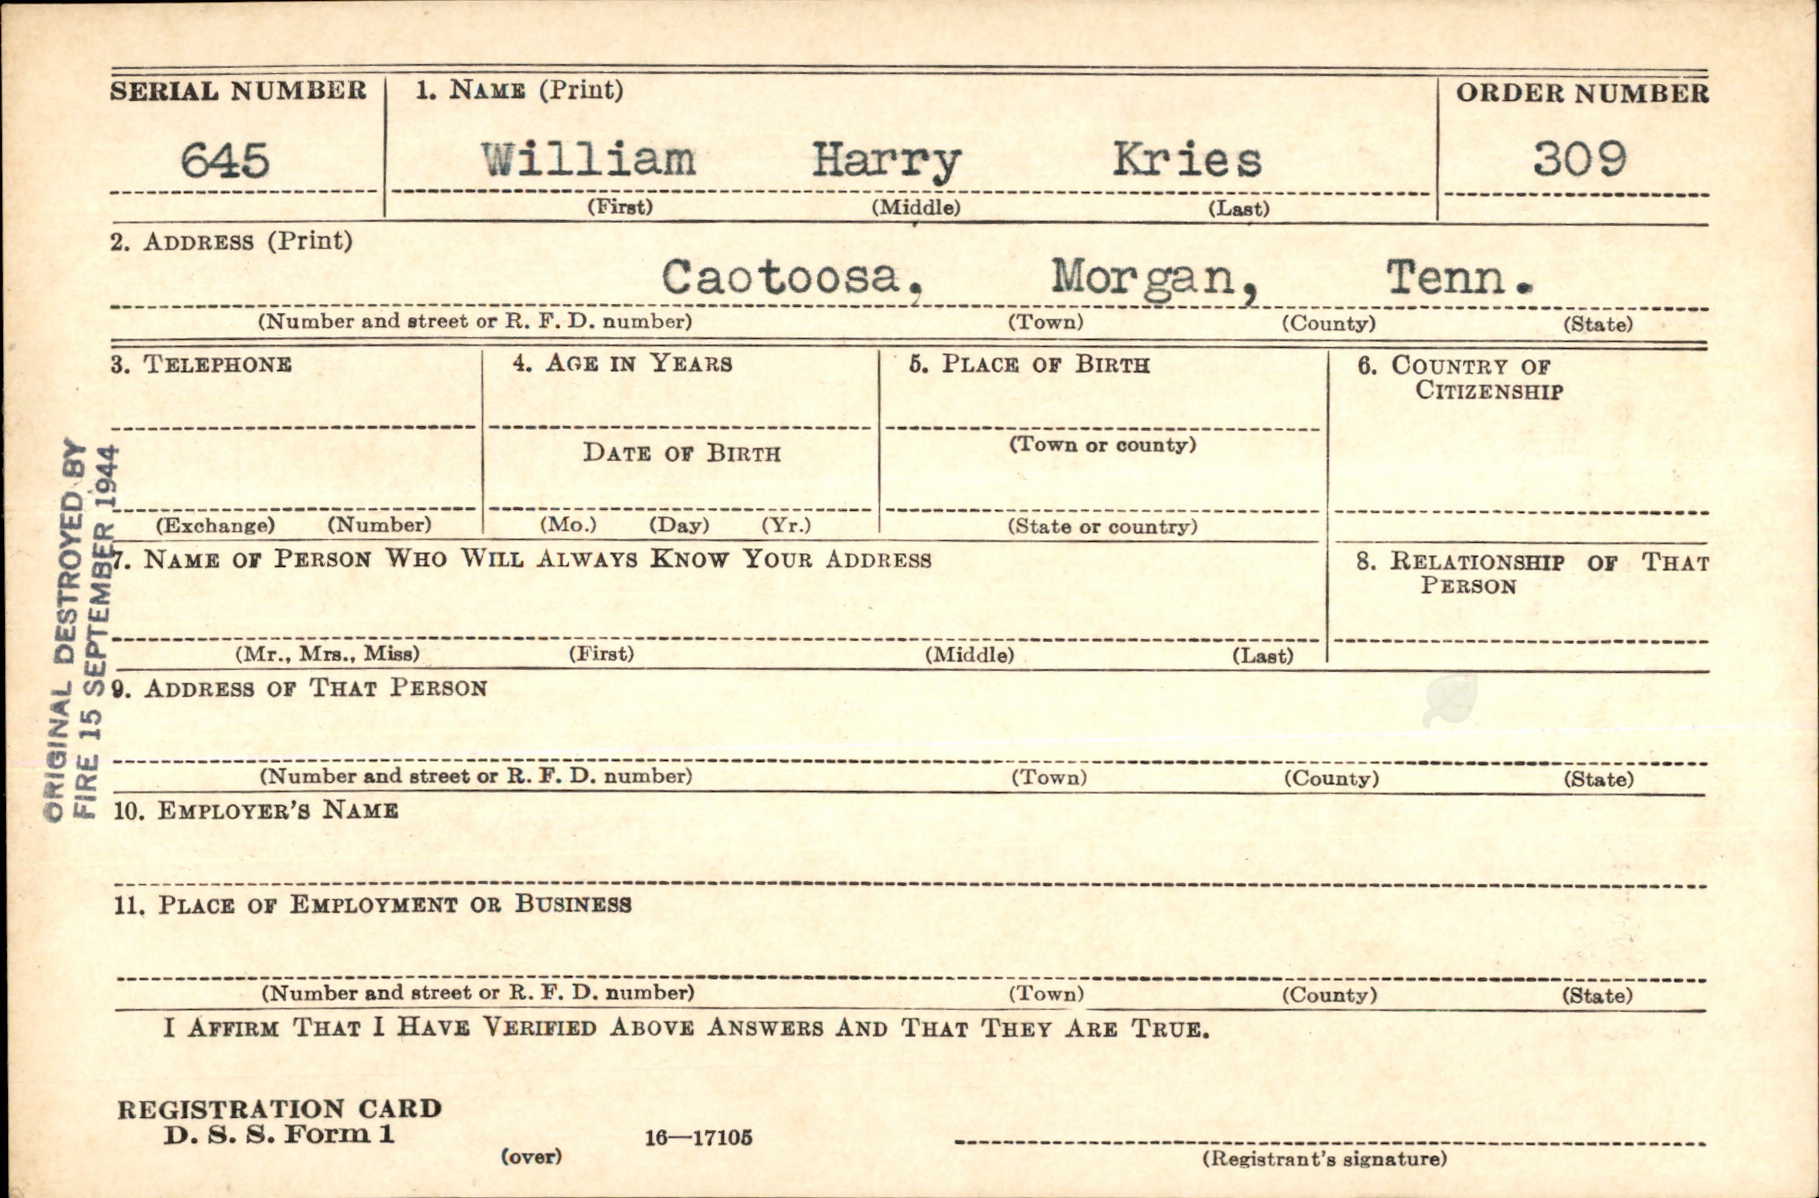 SERIAL NUMBER 1. NAME (Print) ORDER NUMBER
645 William Harry Kries 309
(First) (Middle) (Last)
2. ADDRESS (Print)
Caotoosa, Morgan, Tenn.
(Number and street or R. F. D. number) (Town) (County) (State)
3. TELEPHONE 4. AGE IN YEARS 5. PLACE OF BIRTH 6. COUNTRY OF
CITIZENSHIP
DATE OF BIRTH (Town or county)
(Exchange) (Number) (Mo.) (Day) (Yr.) (State or country)
7. NAME OF PERSON WHO WILL ALWAYS KNOW YOUR ADDRESS 8. RELATIONSHIP OF THAT
PERSON
(Mr., Mrs., Miss) (First) (Middle) (Last)
9. ADDRESS OF THAT PERSON
(Number and street or R. F. D. number) (Town) (County) (State)
10. EMPLOYER'S NAME
11. PLACE OF EMPLOYMENT OR BUSINESS
(Number and street or R. F. D. number) (Town) (County) (State)
I AFFIRM THAT I HAVE VERIFIED ABOVE ANSWERS AND THAT THEY ARE TRUE.
REGISTRATION CARD
D. S. S. Form 1 16—17105
(over) (Registrant's signature)
ORIGINAL DESTROYED BY
FIRE 15 SEPTEMBER 1944